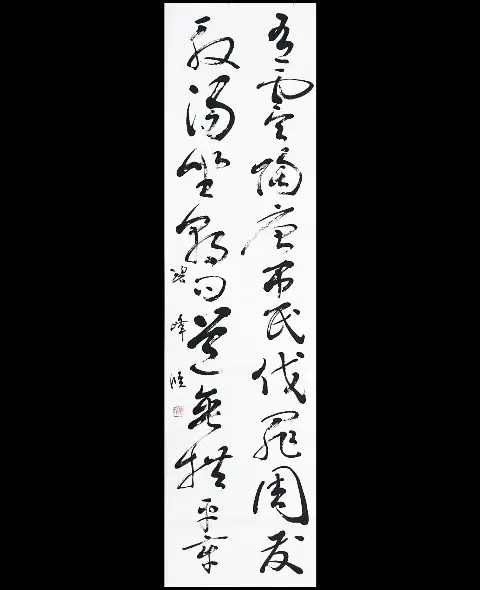 有虞陶唐弔民伐罪周發
殷湯坐朝問道垂拱平章
峰